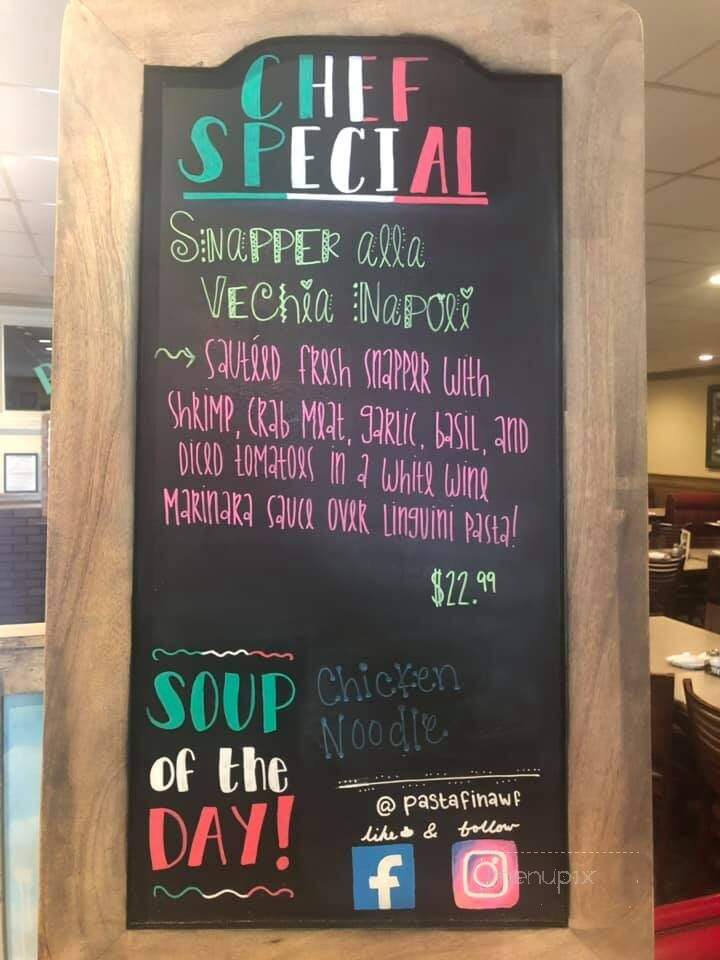 CHEF
SPECIAL
SNAPPER alla
VECHia NAPOli
Sautéed fresh snapper with
shrimp, crab meat, garlic, basil, and
diced tomatoes in a white wine
Marinara sauce over Linguini Pasta!
$22.99
SOUP
of the
DAY!
Chicken
Noodle
@pastafinawf
like & follow
f
menupix